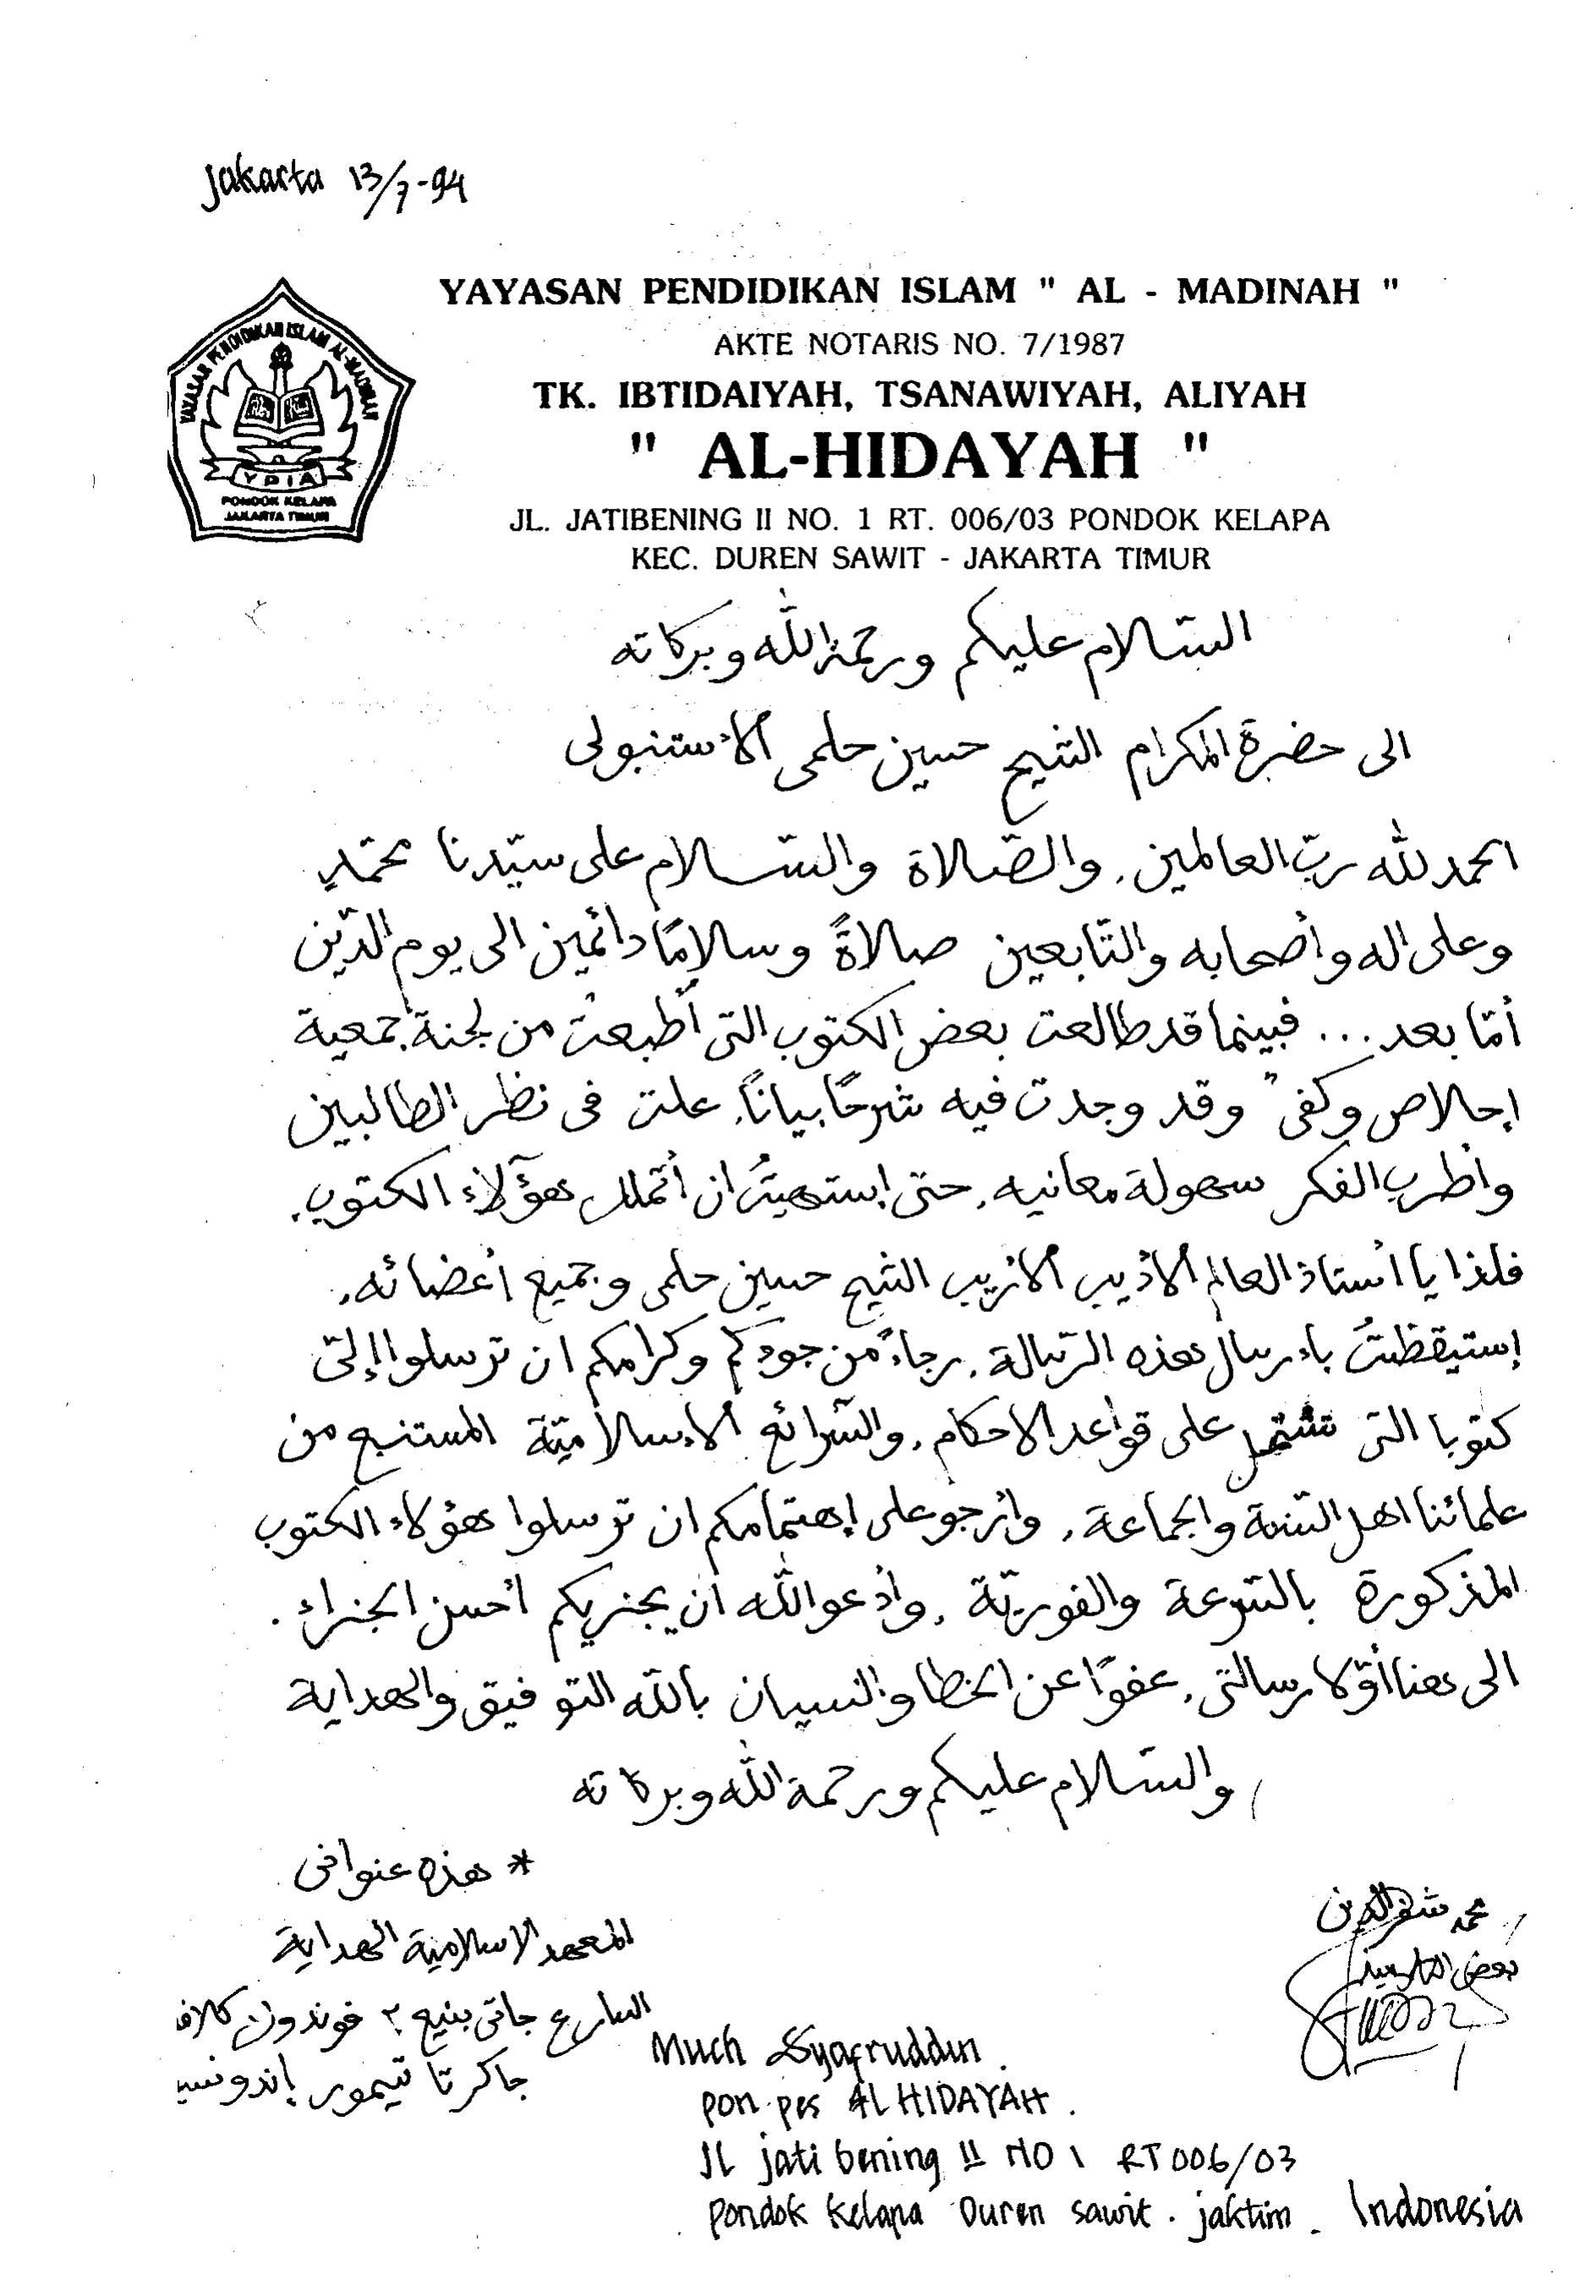 Jakarta 13/7-94
YAYASAN PENDIDIKAN ISLAM " AL - MADINAH "
AKTE NOTARIS NO. 7/1987
TK. IBTIDAIYAH, TSANAWIYAH, ALIYAH
" AL-HIDAYAH "
JL. JATIBENING II NO. 1 RT. 006/03 PONDOK KELAPA
KEC. DUREN SAWIT - JAKARTA TIMUR
YAYASAN PENDIDIKAN ISLAM AL-MADINAH
YPIA
PONDOK KELAPA
JAKARTA TIMUR
السّلام عليكم ورحمة الله وبركاته
الى حضرة المكرام الشيخ حسين حلمى الأستنبولى
الحمد لله ربّ العالمين, والصّلاة والسّلام على سيّدنا محمّد
وعلى اله وأصحابه والتّابعين صلاةً وسلامًا دائمين الى يوم الدّين
أمّا بعد ... فبينما قد طالعت بعض الكتوب التى أطبعت من لجنة جمعية
إخلاص وكفى" وقد وجدت فيه شرحًا بيانًا, علت فى نظر الطالبين
وأطرب الفكر سهولة معانيه, حتى إستهيتُ ان أتملك هؤلاء الكتوب,
فلذا يا أستاذ العالم الأديب الأريب الشيخ حسين حلمى وجميع أعضائه,
إستيقظتُ بإرسال هذه الرّسالة, رجاءً من جودكم وكرامكم ان ترسلوا إلىّ
كتوبا التى تشتمل على قواعد الاحكام, والشّرائع الإسلاميّة المستنبع من
علمائنا اهل السّنة والجماعة, وأرجو على إهتمامكم ان ترسلوا هؤلاء الكتوب
المذكورة بالسّرعة والفوريّة, وأدعو الله أن يجزيكم أحسن الجزاء.
الى هنا أوّلا رسالتى, عفوًا عن الخطا والنسيان بالله التوفيق والهداية
والسّلام عليكم ورحمة الله وبركاته
* هذه عنوانى
المعهد الاسلامية الهداية
السارع جاتى بنيع ٢ فوندوك كلاف
جاكرتا تيمور إندونسيـ
محمد شفر الدين
بعض
Much Syafruddin
pon. pes AL HIDAYAH.
JL jati bening II NO 1 RT 006/03
pondok kelapa Duren sawit. jaktim. Indonesia